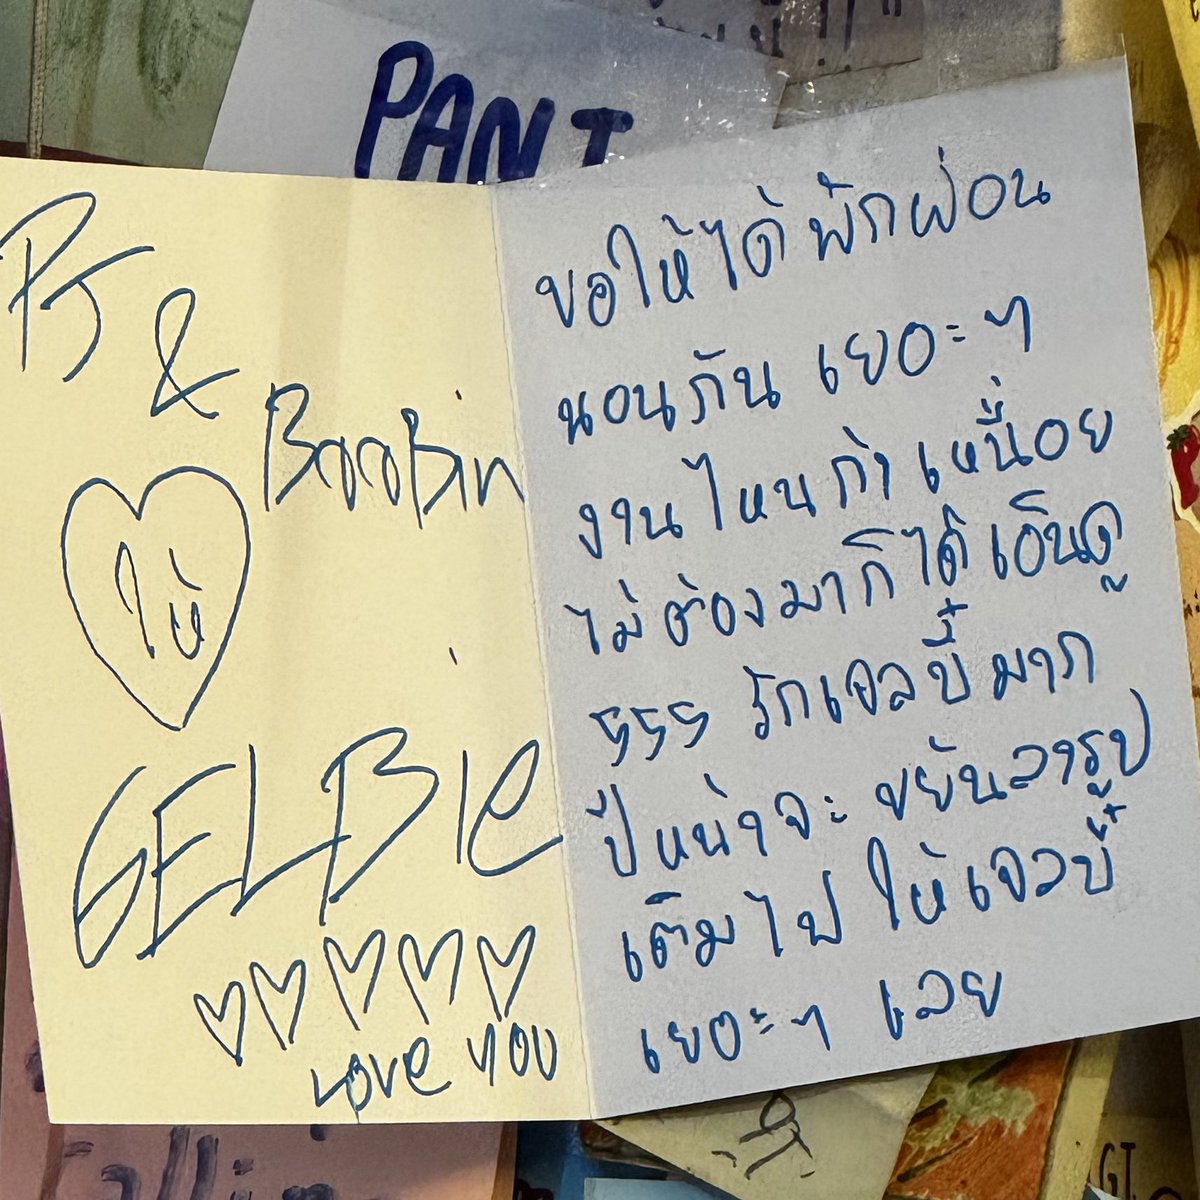 PANI
PJ
&
BooBin
ให้
GELBie
Love you
ขอให้ได้พักผ่อน
นอนกันเยอะๆ
งานไหนถ้าเหนื่อย
ไม่ต้องมาก็ได้เอ็นดู
555 รักเจลบี้มาก
ปีหน้าจะขยันลงรูป
เติมไฟให้เจลบี๋
เยอะๆ เลย
GI